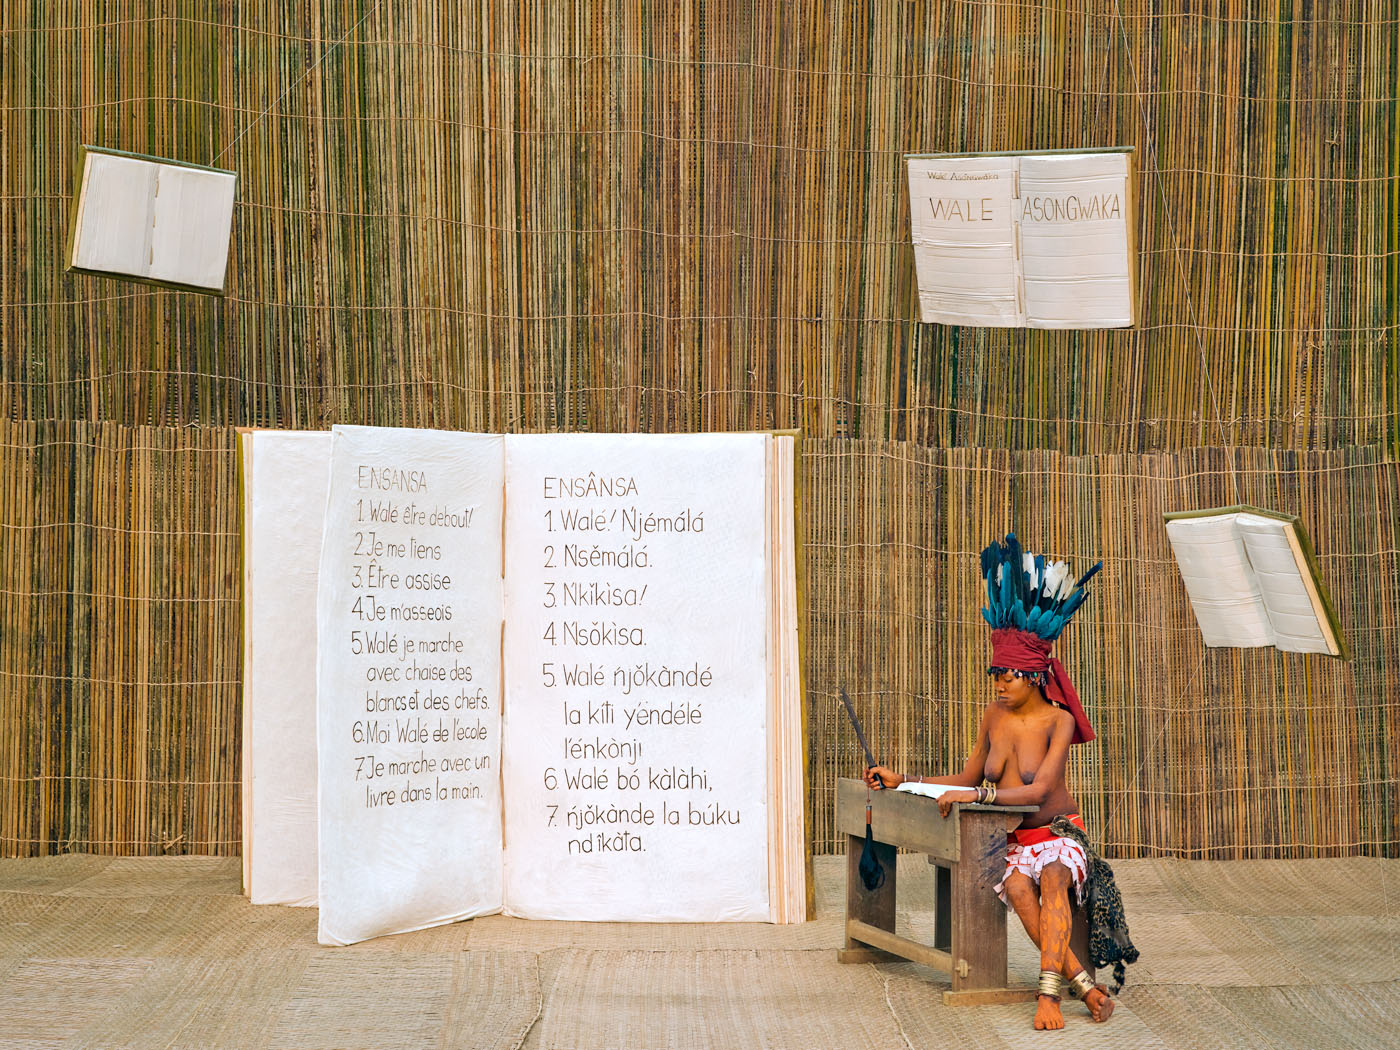 Walé Asongwaka
WALE ASONGWAKA
ENSANSA
1. Walé être debout!
2. Je me tiens
3. Être assise
4. Je m'asseois
5. Walé je marche
avec chaise des
blancs et des chefs.
6. Moi Walé de l'école
7. Je marche avec un
livre dans la main.
ENSÂNSA
1. Walé! Ńjémálá
2. Nsěmálá.
3. Nkǐkìsa!
4. Nsǒkìsa.
5. Walé ńjǒkàndé
la kíti y'éndélé
l'énkònji
6. Walé bó kàlàhi,
7. ńjǒkànde la búku
nd'îkàta.